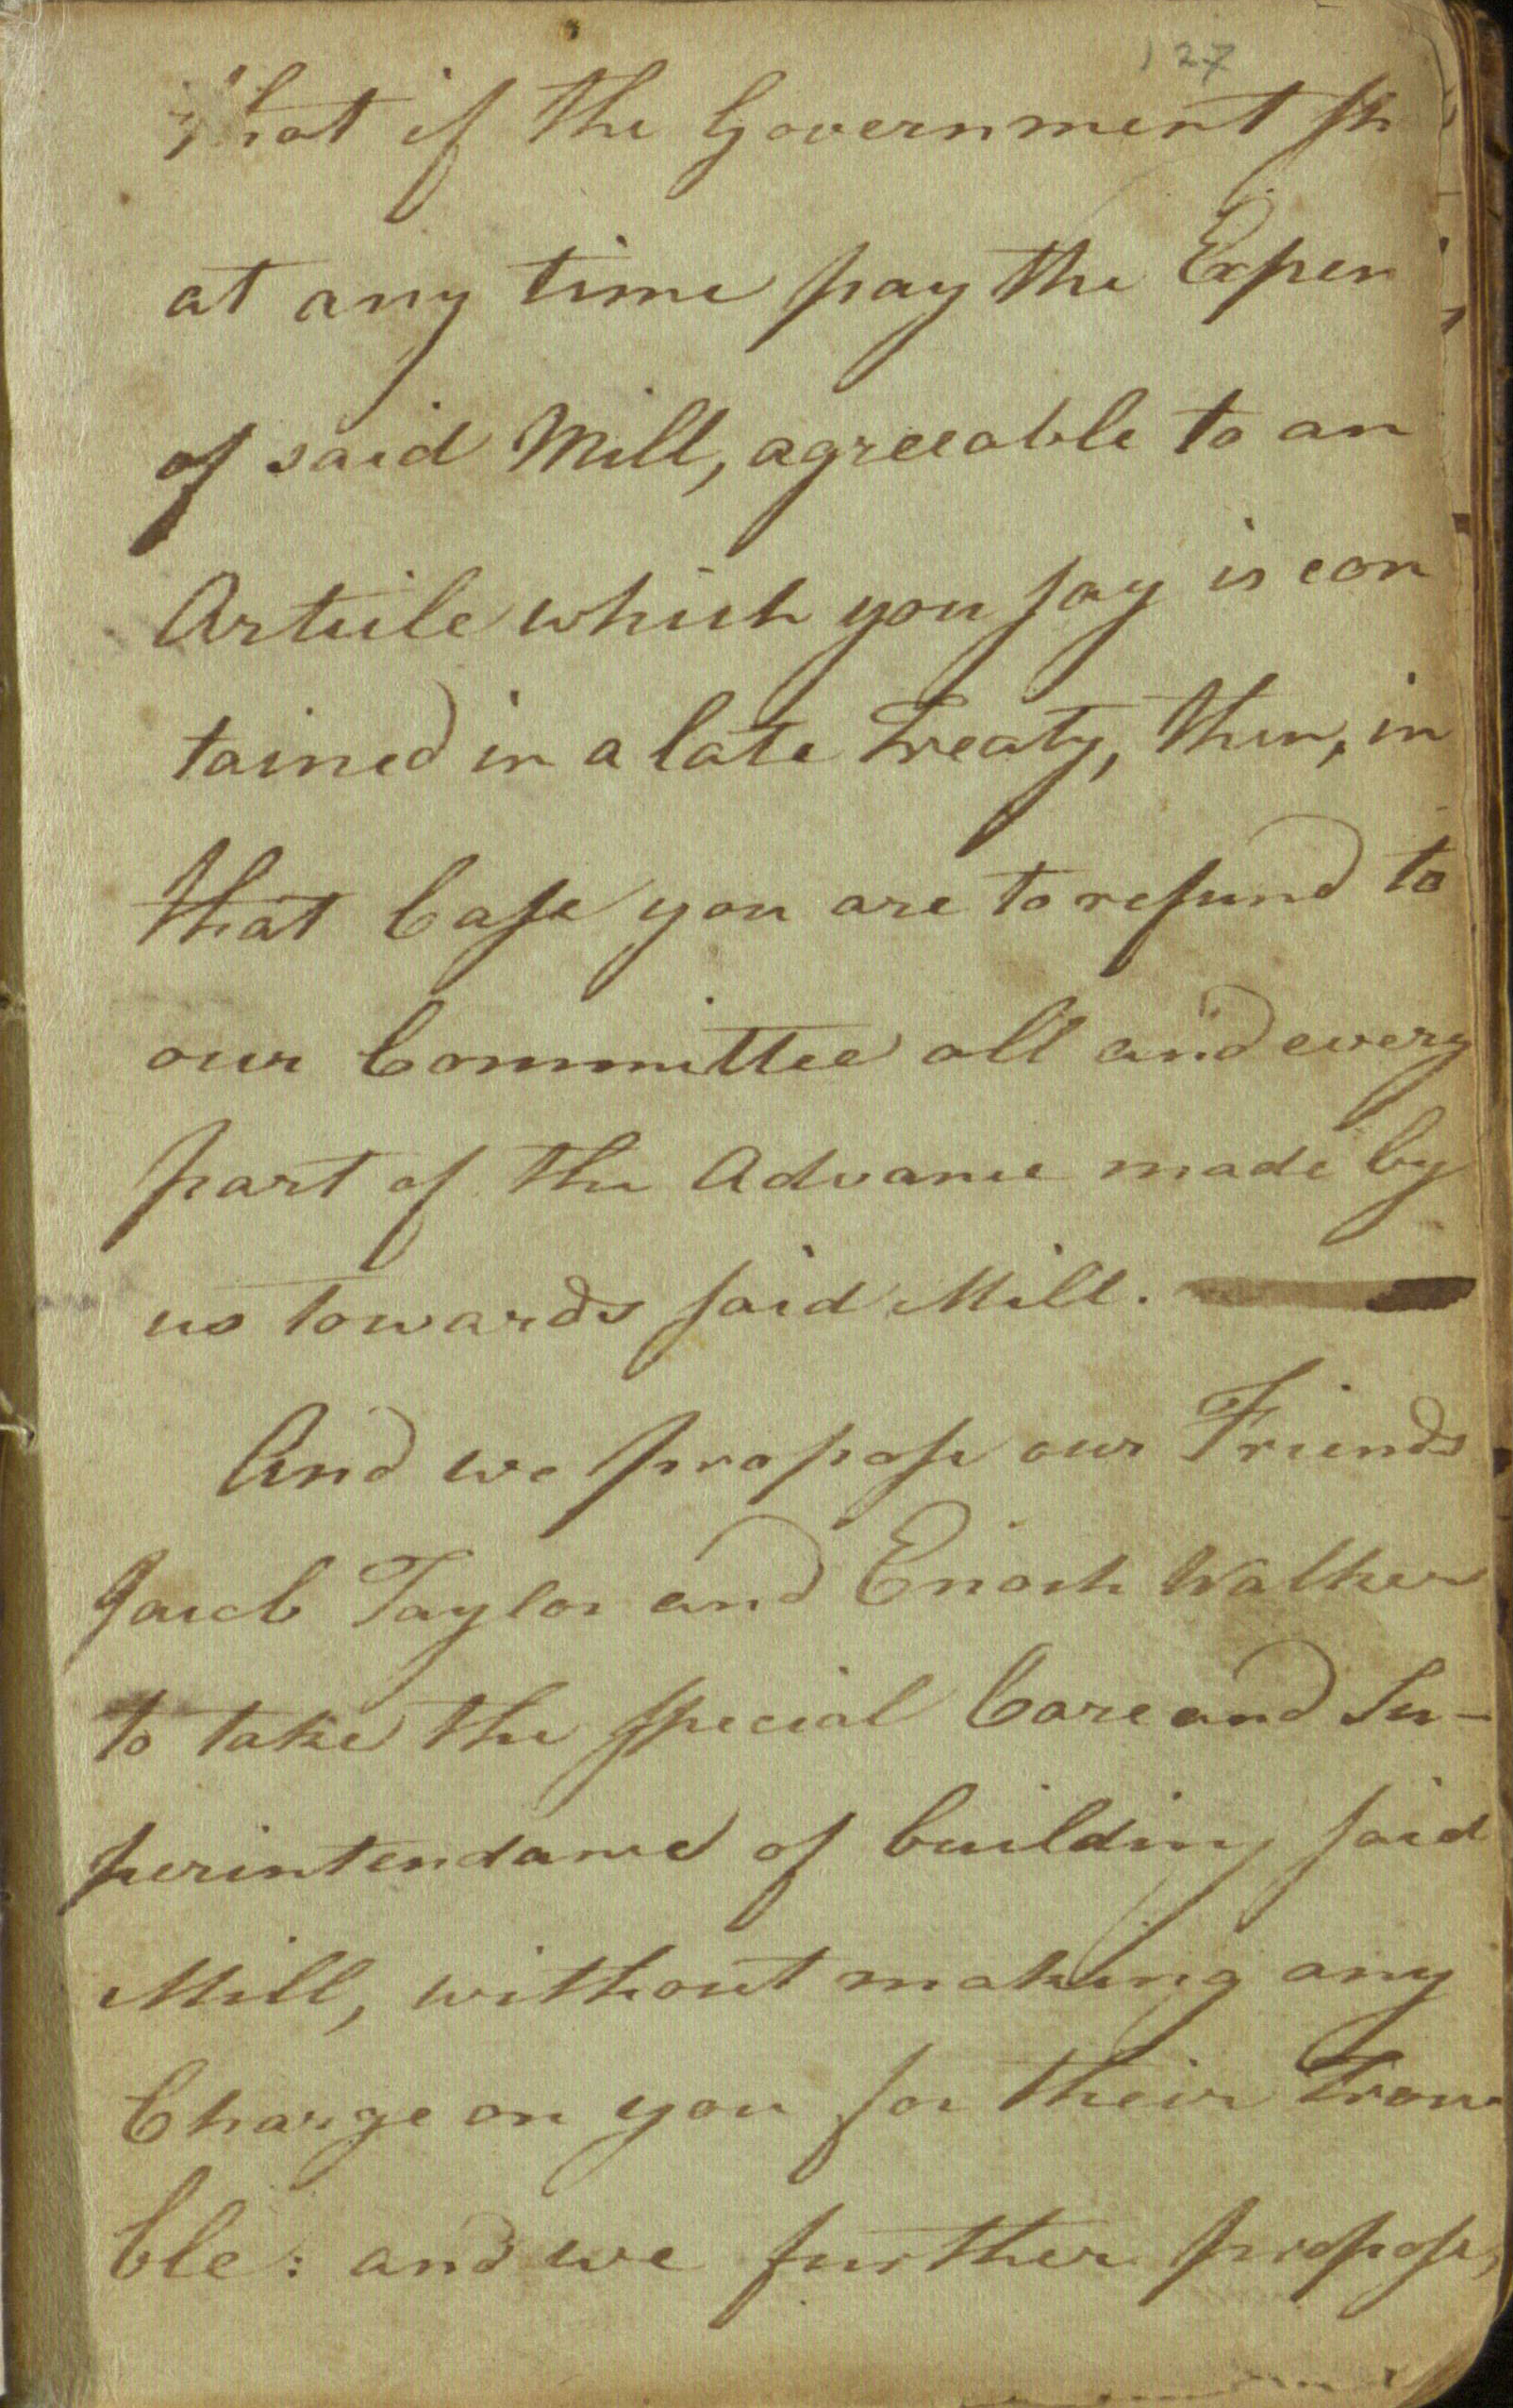 127
that if the Government sh
at any time pay the Expen
of said Mill, agreeable to an
Article which you say is con
tained in a late Treaty, then, in
that Case you are to refund to
our Committee all and every
part of the Advance made by
us towards said Mill.
And we propose our Friends
Jacob Taylor and Enoch Walker
to take the special Care and Su-
perintendance of building said
Mill, without making any
Charge on you for their Trou
ble: and we further propose,